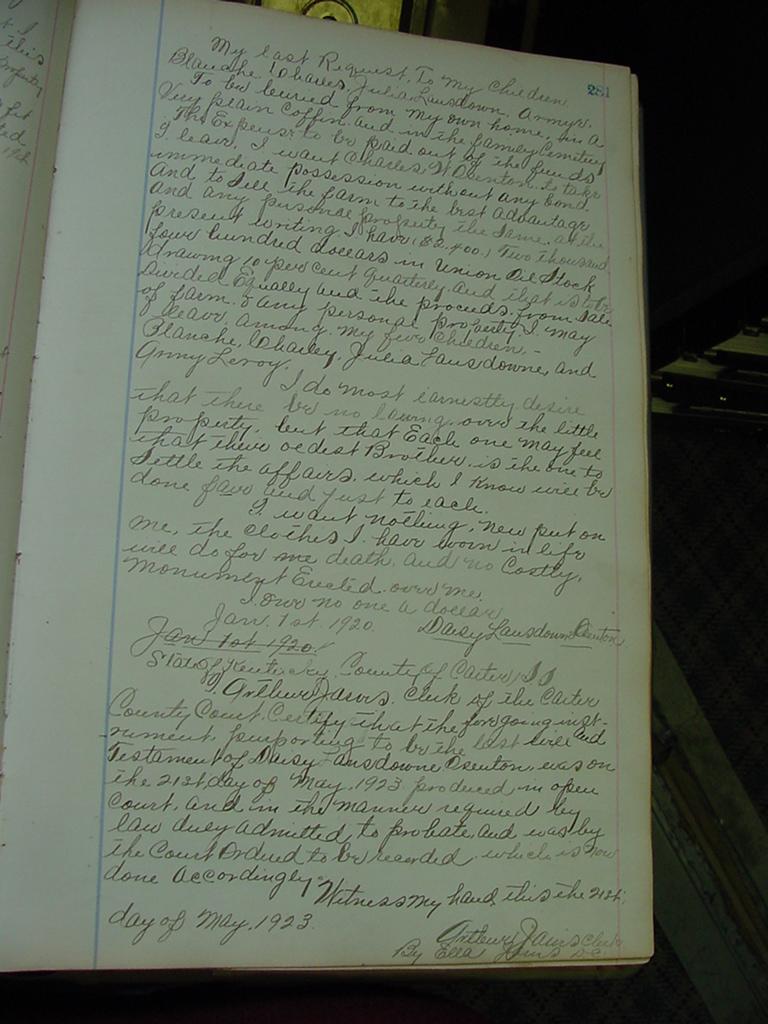 281
My last Request. To my children
Blanche, Charles, Julia Lansdown, Army.
To be buried from my own home, in a
Very plain Coffin and in the family Cemetery
The Expense to be paid out of the funds
I leave, I want Charles W Osenton, to take
immediate possession without any bond.
And to Sell the farm to the best advantage
and any personal property the same, at the
present writing I have ($2.400.) Two thousand
four hundred dollars in Union Oil Stock
drawing 10 per cent quarterly. and that is to be
Divided Equally and the proceeds from Sale
of farm. & any personal property. I may
leave among my five Children, -
Blanche, Charley, Julia Lansdowne, and
Army Leroy.
I do most earnestly desire
that there be no lawing, over the little
property, but that Each one may feel
that their oldest Brother, is the one to
Settle the affairs, which I know will be
done fair and just to each.
I want nothing, new put on
me, the clothes I have worn in life
will do for me death, and no Costly,
Monument Erected over me.
I owe no one a dollar
Jan. 1st 1920. Daisy Lansdowne Osenton
Jan 1st 1920.
State of Kentucky, County of Carter, SS
I. Arthur Jarvis. Clerk of the Carter
County Court. Certify that the foregoing inst-
rument, purporting to be the last will and
Testament of Daisy Lansdowne Osenton, was on
the 21st day of May, 1923 produced in open
Court, and in the manner required by
law duly admitted, to probate, and was by
the Court Ordered to be recorded, which is now
done accordingly
Witness my hand, this the 21st
day of May, 1923.
Arthur Jarvis Clerk
By Ella Jarvis D.C.